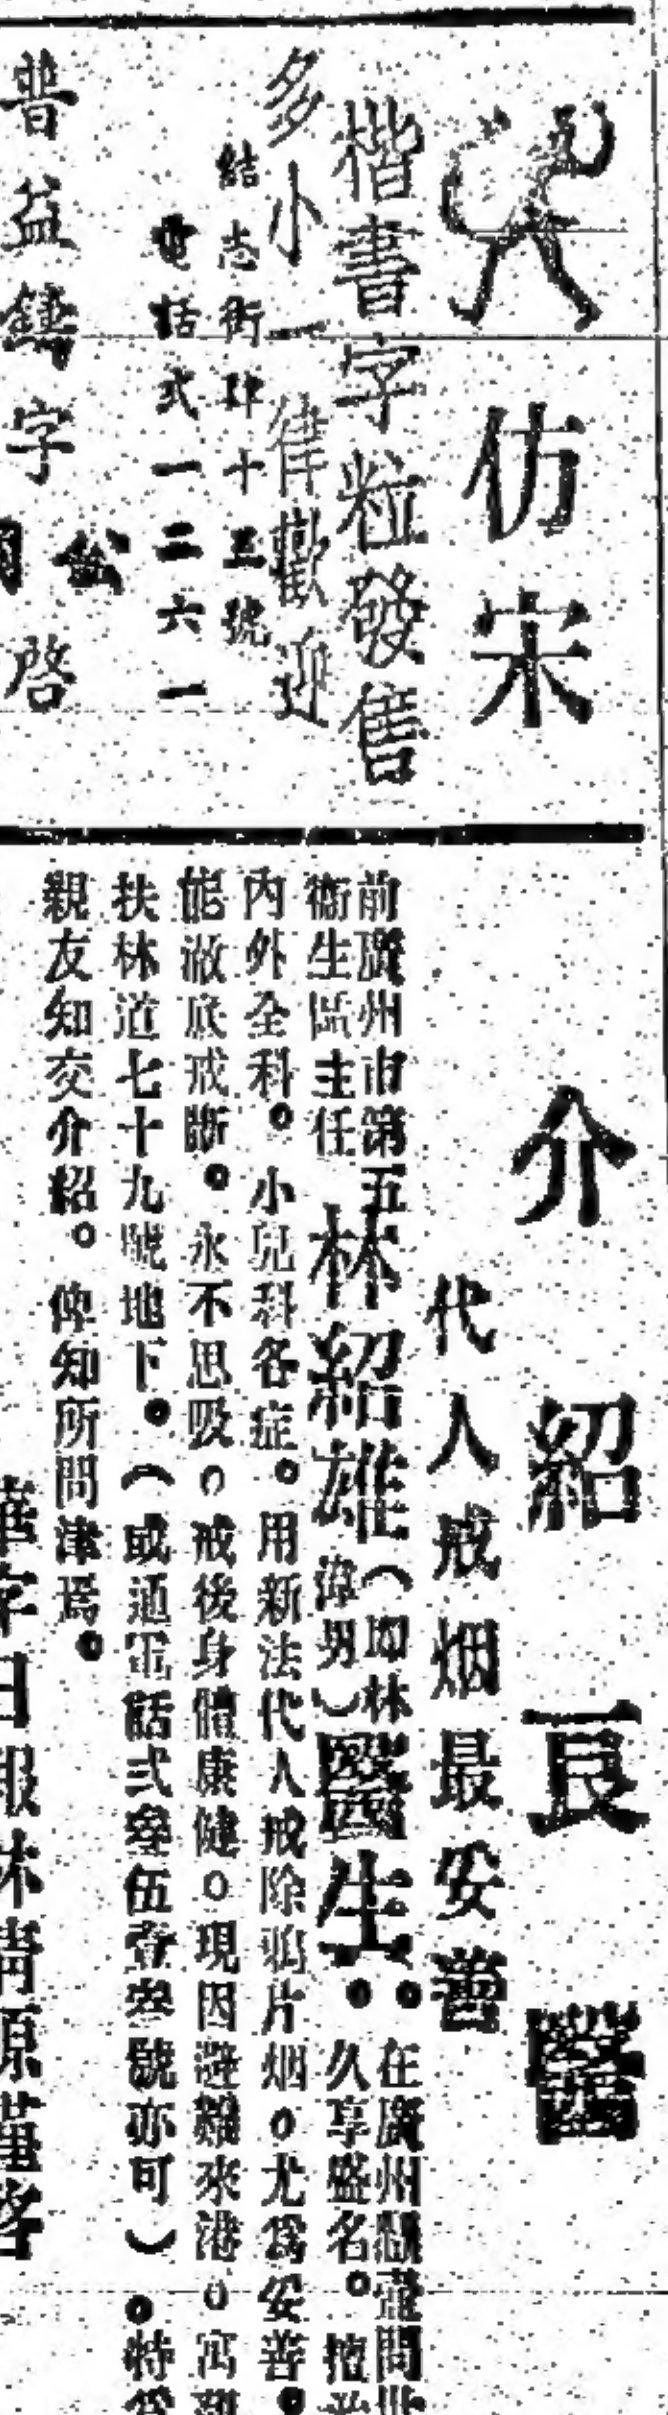 仿宋
楷書字粒發售
多小一律歡迎
結志街肆十三號
電話式一二六一
普益鑄字公司啓
介紹良醫
代人戒烟最安善
前廣州市第五
衞生區主任
林紹雄
（即林
偉男）
醫生。
。在廣州懸壺問世
久享盛名。擅
內外全科。小兒科各症。用新法代人戒除鴉片烟。尤爲安善。
能澈底戒斷。永不思吸。戒後身體康健。現因避難來港。寓
扶林道七十九號地下。（或通電話弍叁伍壹叁號亦可）。特爲
親友知交介紹。俾知所問津焉。
華字日報林清源謹啓